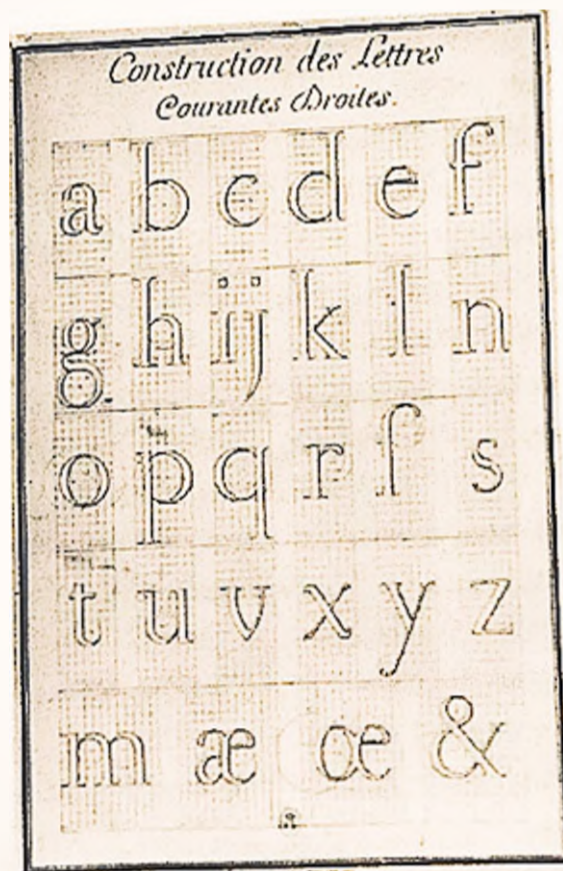 Construction des Lettres
Courantes Droites.
a b c d e f
g h i j k l n
o p q r ſ s
t u v x y z
m æ œ &